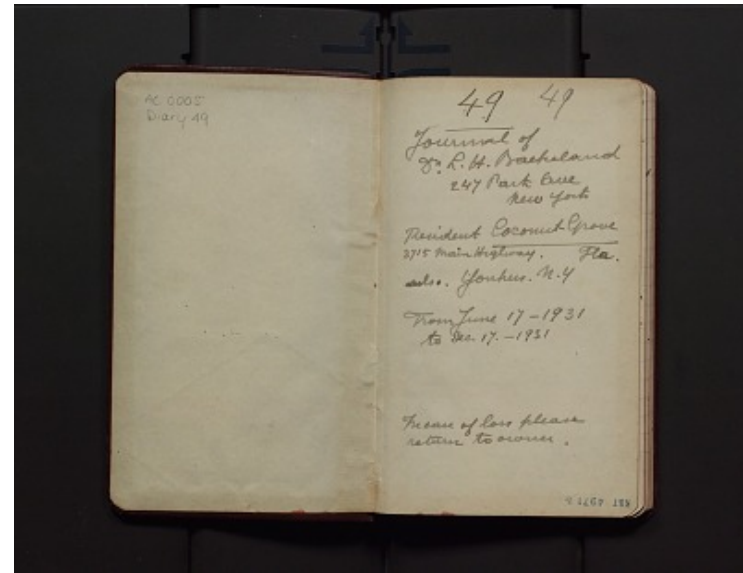 AC 0005
Diary 49
49 49
Journal of
Dr. L. H. Baekeland
247 Park Ave
New York
Resident Coconut Grove
3715 Main Highway. Fla.
also. Yonkers. N.Y
From June 17-1931
to Dec. 17.-1931
In case of loss please
return to owner.